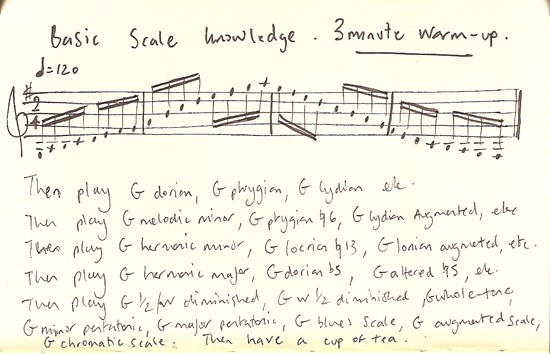 Basic Scale knowledge. 3 minute warm-up.
♩=120
2
4
Then play G dorian, G phrygian, G lydian etc.
Then play G melodic minor, G phrygian ♮6, G lydian Augmented, etc
Then play G harmonic minor, G locrian ♮13, G Ionian augmented, etc.
Then play G harmonic major, G dorian b5, G altered ♮5, etc.
Then play G 1/2 / w diminished, G w 1/2 diminished, G whole-tone,
G minor pentatonic, G major pentatonic, G blues scale, G augmented scale,
G chromatic scale. Then have a cup of tea.